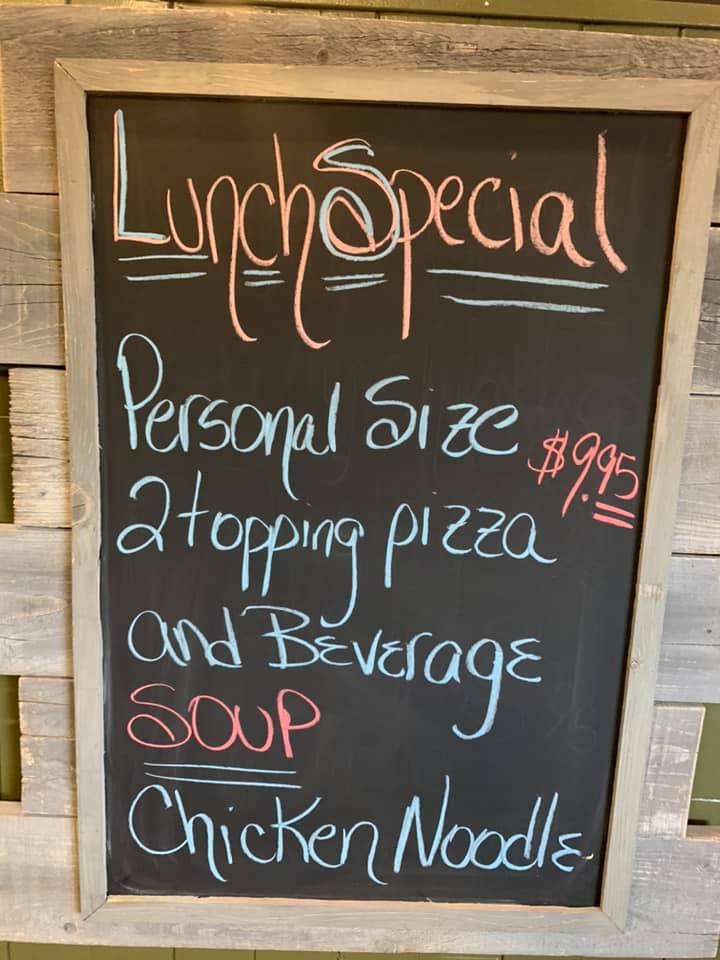 Lunch Special
Personal Size
$9.95
2 topping pizza
and Beverage
SOUP
Chicken Noodle